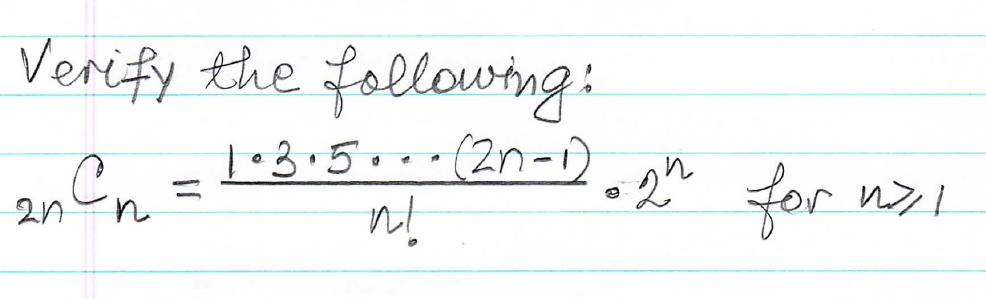 Verify the following:
₂ₙCₙ = 1·3·5···(2n-1) / n! · 2ⁿ for n≥1